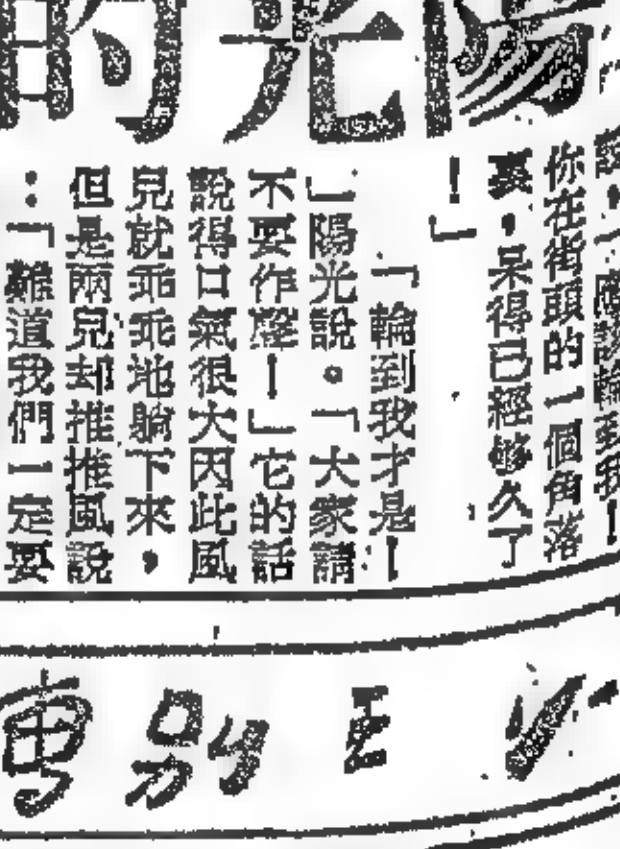 陽光的
你在街頭的一個角落
裏，呆得已經夠久了
！」
「輪到我才是！
」陽光說。「大家請
不要作聲！」它的話
說得口氣很大因此風
兒就乖乖地躺下來，
但是雨兒却推推風說
：「難道我們一定要